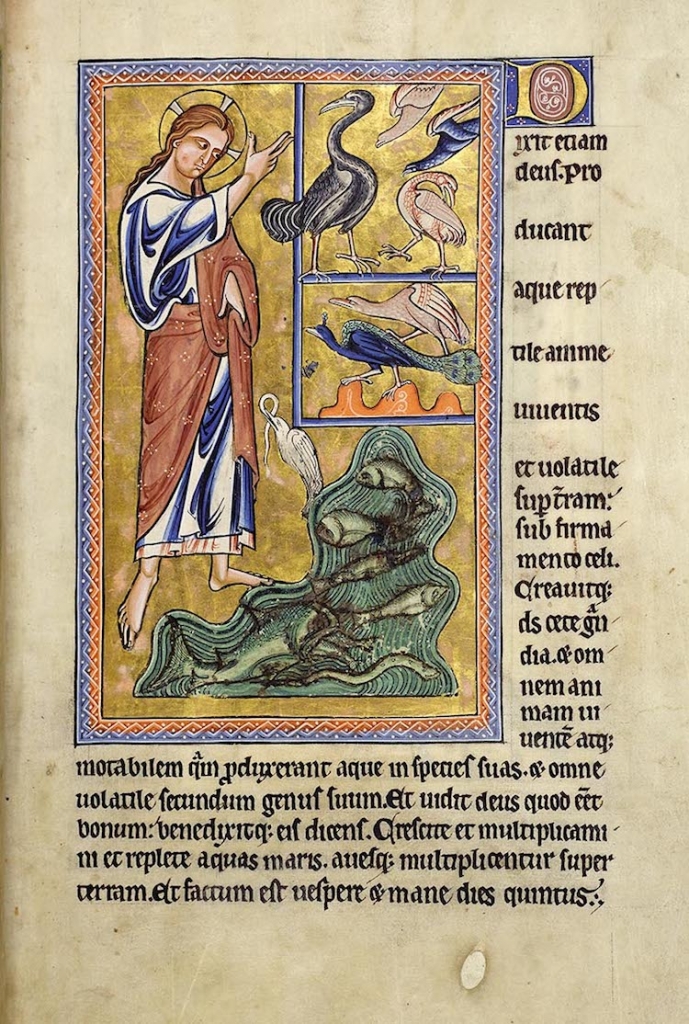 Dixit etiam
deus. Pro
ducant
aque rep
tile anime
uiuentis
et uolatile
sup t̄ram:
sub firma
mento celi.
Creauitq:
ds cete gͣn
dia. & om
nem ani
mam ui
uentē atq;
motabilem qͣm pduxerant aque in species suas. & omne
uolatile secundum genus suum. Et uidit deus quod eēt
bonum: benedixitq; eis dicens. Crescite et multiplicami
ni et replete aquas maris. auesq; multiplicentur super
terram. Et factum est uespere & mane dies quintus:,